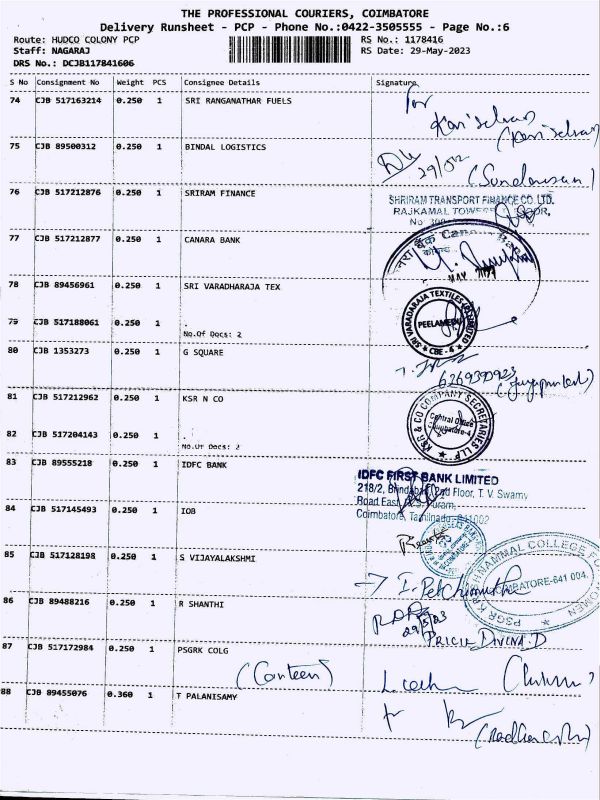 THE PROFESSIONAL COURIERS, COIMBATORE
Delivery Runsheet - PCP - Phone No.:0422-3505555 - Page No.:6
Route: HUDCO COLONY PCP
RS No.: 1178416
Staff: NAGARAJ
RS Date: 29-May-2023
DRS No.: DCJB117841606
S No Consignment No Weight PCS Consignee Details Signature
74 CJB 517163214 0.250 1 SRI RANGANATHAR FUELS
for
75 CJB 89500312 0.250 1 BINDAL LOGISTICS
76 CJB 517212876 0.250 1 SRIRAM FINANCE
SHRIRAM TRANSPORT FINANCE CO. LTD.
RAJKAMAL TOWERS
77 CJB 517212877 0.250 1 CANARA BANK
MAY
78 CJB 89456961 0.250 1 SRI VARADHARAJA TEX
SRI VARADARAJA TEXTILES
PEELAMEDU
CBE - 4
79 CJB 517188061 0.250 1 .
No.Of Docs: 2
80 CJB 1353273 0.250 1 G SQUARE
81 CJB 517212962 0.250 1 KSR N CO
KSR & CO COMPANY SECRETARIES LLP
Central Office
Coimbatore-4
82 CJB 517204143 0.250 1 .
No.Of Docs: 2
83 CJB 89555218 0.250 1 IDFC BANK
IDFC FIRST BANK LIMITED
218/2, 2nd Floor, T. V. Swamy
Road East, R.S. Puram,
Coimbatore, Tamilnadu 641002
84 CJB 517145493 0.250 1 IOB
85 CJB 517128198 0.250 1 S VIJAYALAKSHMI
PSGR KRISHNAMMAL COLLEGE FOR WOMEN
COIMBATORE-641 004.
86 CJB 89488216 0.250 1 R SHANTHI
29/5/23
PRICIA DIVINA.D
87 CJB 517172984 0.250 1 PSGRK COLG
(Canteen)
88 CJB 89455076 0.360 1 T PALANISAMY